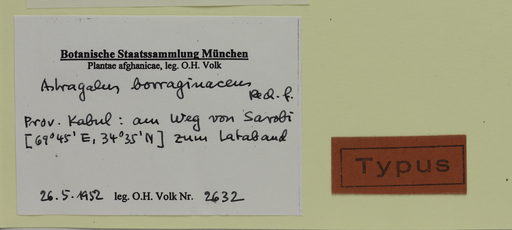 Botanische Staatssammlung München
Plantae afghanicae, leg. O.H. Volk
Astragalus borraginaceus
Rech. f.
Prov. Kabul: am Weg von Sarobi
[69°45'E, 34°35'N] zum Lataband
26.5.1952 leg. O.H. Volk Nr. 2632
Typus